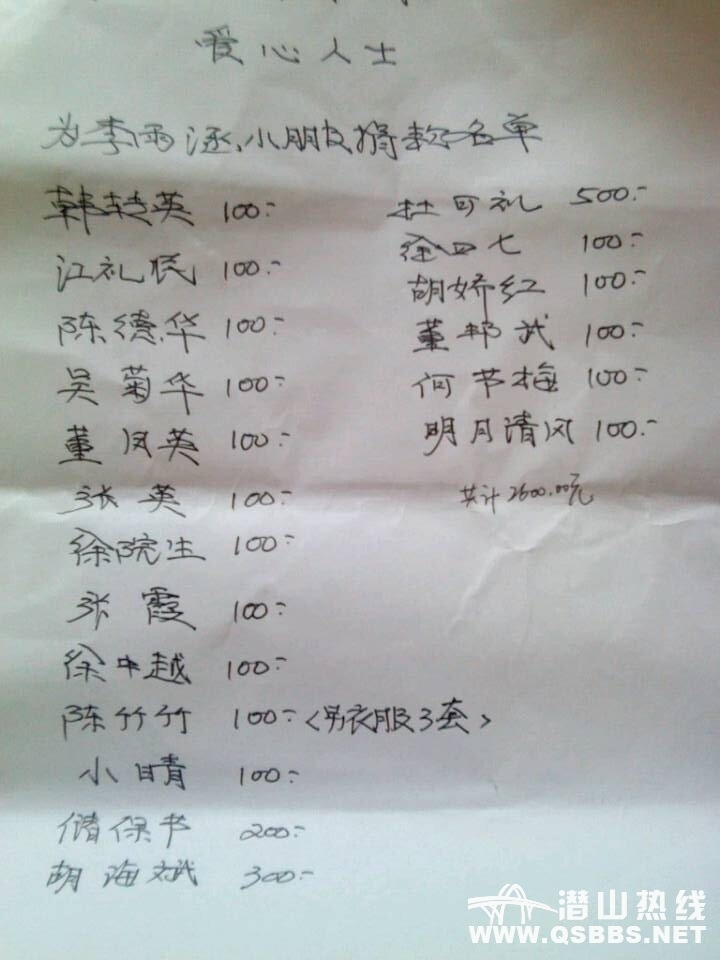 爱心人士
为李雨涵小朋友捐款名单
韩转英 100.-
江礼民 100.-
陈德华 100.-
吴菊华 100.-
董凤英 100.-
张英 100.-
徐院生 100.-
张霞 100.-
徐中越 100.-
陈竹竹 100.-〈另衣服3套〉
小晴 100.-
储保书 200.-
胡海斌 300.-
杜可礼 500.-
徐四七 100.-
胡娇红 100.-
董邦武 100.-
何节梅 100.-
明月清风 100.-
共计2600.00元
潜山热线
WWW.QSBBS.NET